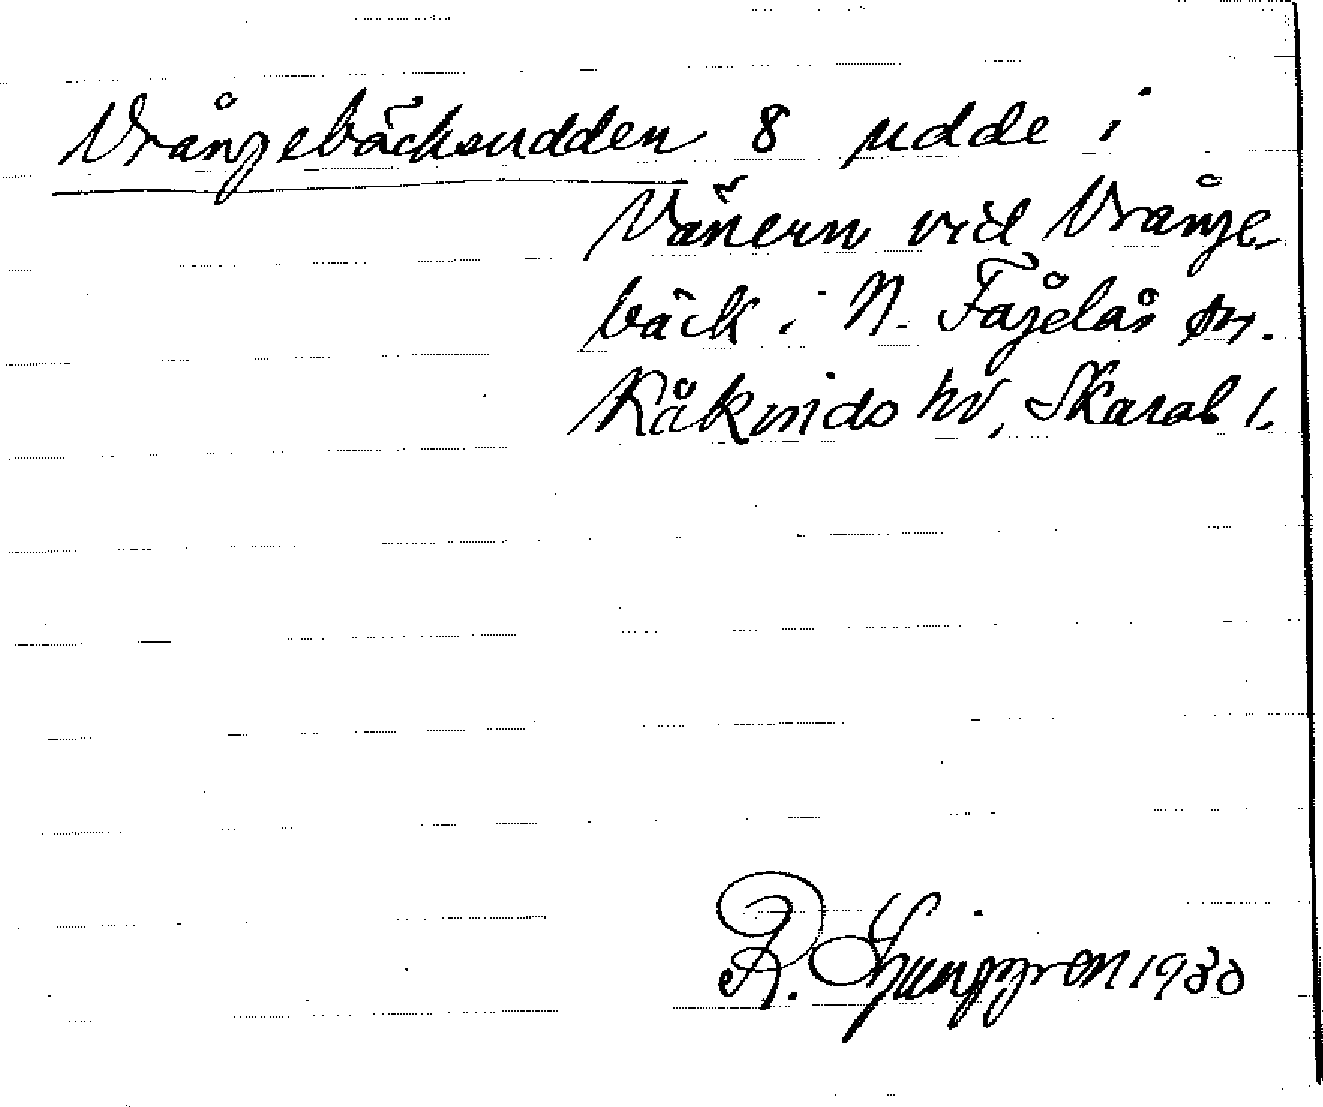 Vrångebäcksudden 8 udde i
Vänern vid Vrånge-
bäck i N. Fågelås sn.
Kåkinds hd, Skarab l.
R. Ljunggren 1930